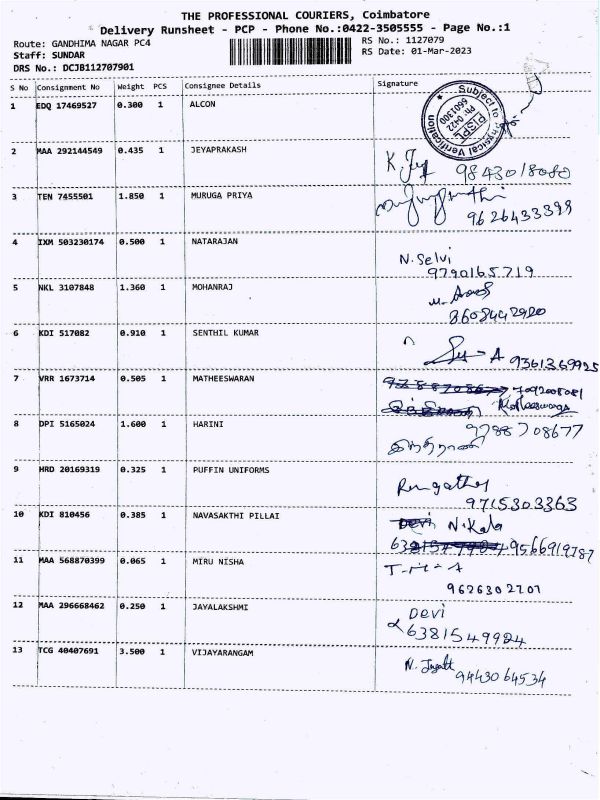 THE PROFESSIONAL COURIERS, Coimbatore
Delivery Runsheet - PCP - Phone No.:0422-3505555 - Page No.:1
Route: GANDHIMA NAGAR PC4
RS No.: 1127079
Staff: SUNDAR
RS Date: 01-Mar-2023
DRS No.: DCJB112707901
S No Consignment No Weight PCS Consignee Details Signature
1 EDQ 17469527 0.300 1 ALCON
Subject to Physical Verification
PISPL
Ph: 0422
6601300
2 MAA 292144549 0.435 1 JEYAPRAKASH
9843018080
3 TEN 7455501 1.850 1 MURUGA PRIYA
9626433399
4 IXM 503230174 0.500 1 NATARAJAN
N. Selvi
9790165719
5 NKL 3107848 1.360 1 MOHANRAJ
8608442920
6 KDI 517082 0.910 1 SENTHIL KUMAR
9361369925
7 VRR 1673714 0.505 1 MATHEESWARAN
7092008081
8 DPI 5165024 1.600 1 HARINI
9788708677
9 HRD 20169319 0.325 1 PUFFIN UNIFORMS
9715303363
10 KDI 810456 0.385 1 NAVASAKTHI PILLAI
Devi N.Kala
9566919787
11 MAA 568870399 0.065 1 MIRU NISHA
9626302701
12 MAA 296668462 0.250 1 JAYALAKSHMI
Devi
6381549924
13 TCG 40407691 3.500 1 VIJAYARANGAM
9443064534